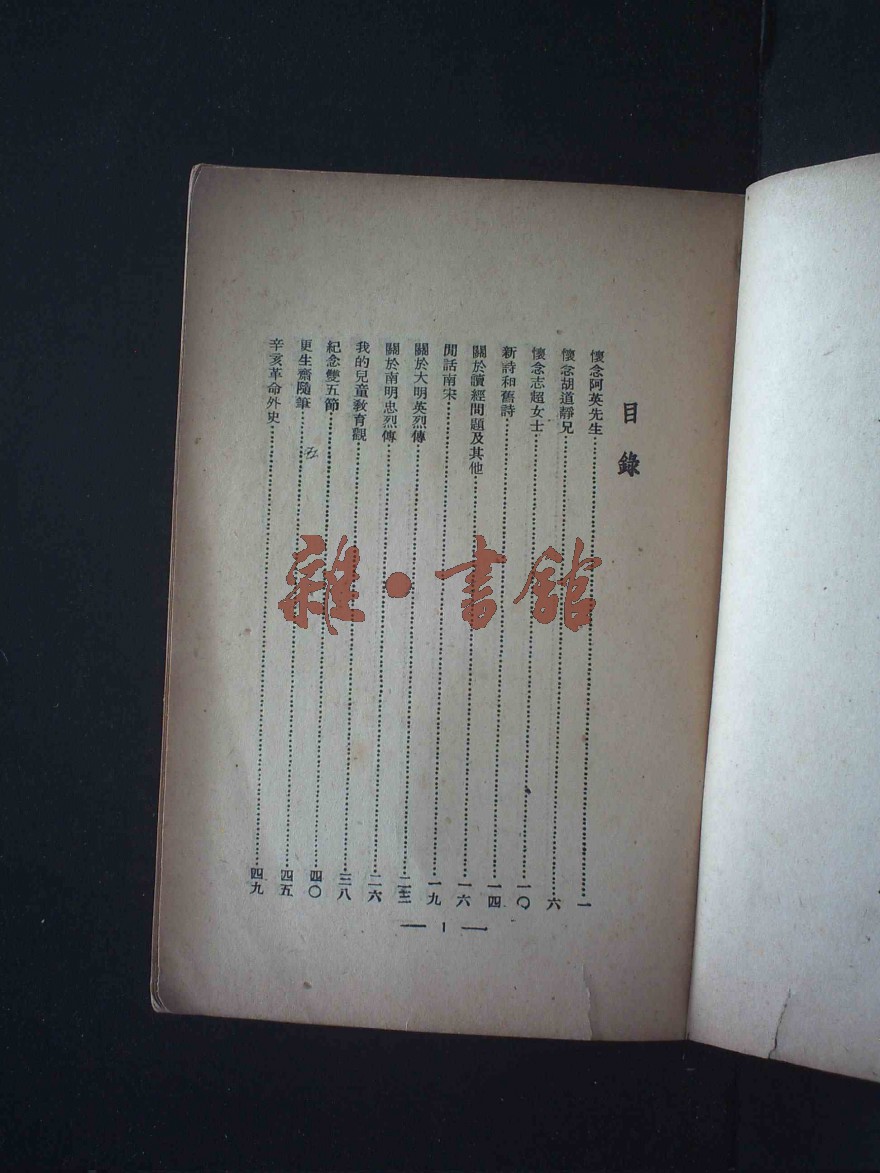 目錄
懷念阿英先生……一
懷念胡道靜兄……六
懷念志超女士……一〇
新詩和舊詩……一四
關於讀經問題及其他……一六
閒話南宋……一九
關於大明英烈傳……二三
關於南明忠烈傳……二六
我的兒童敎育觀……三八
紀念雙五節……四〇
更生齋隨筆……四五
辛亥革命外史……四九
— 1 —
雜·書館